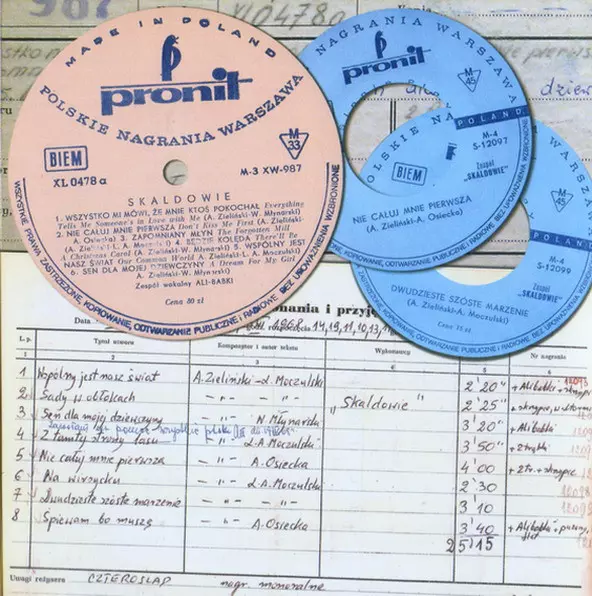 987
XL0478a
MADE IN POLAND
pronit
POLSKIE NAGRANIA WARSZAWA
BIEM
M 33
XL 0478 a
M-3 XW-987
SKALDOWIE
1. WSZYSTKO MI MÓWI, ŻE MNIE KTOŚ POKOCHAŁ Everything
Tells Me Someone's in Love with Me (A. Zieliński-W. Młynarski)
2. NIE CAŁUJ MNIE PIERWSZA Don't Kiss Me First (A. Zieliński-
A. Osiecka) 3. ZAPOMNIANY MŁYN The Forgotten Mill
(A. Zieliński-L. A. Moczulski) 4. BĘDZIE KOLĘDA There'll Be
A Christmas Carol (A. Zieliński-L. A. Moczulski) 5. WSPÓLNY JEST
NASZ ŚWIAT Our Common World (A. Zieliński-L. A. Moczulski)
6. SEN DLA MOJEJ DZIEWCZYNY A Dream For My Girl
(A. Zieliński-W. Młynarski)
Zespół wokalny ALI-BABKI
Cena 80 zł
WSZYSTKIE PRAWA ZASTRZEŻONE. KOPIOWANIE, ODTWARZANIE PUBLICZNE I RADIOWE BEZ UPOWAŻNIENIA WZBRONIONE
NAGRANIA WARSZAWA
pronit
M 45
POLSKIE NAGRANIA
POLAND
BIEM
M-4
S-12097
Zespół
"SKALDOWIE"
NIE CAŁUJ MNIE PIERWSZA
(A. Zieliński-A. Osiecka)
KOPIOWANIE, ODTWARZANIE PUBLICZNE I RADIOWE BEZ UPOWAŻNIENIA WZBRONIONE
WARSZAWA
M 45
POLAND
M-4
S-12099
Zespół
"SKALDOWIE"
DWUDZIESTE SZÓSTE MARZENIE
(A. Zieliński-L. A. Moczulski)
Cena 15 zł
KOPIOWANIE, ODTWARZANIE PUBLICZNE I RADIOWE BEZ UPOWAŻNIENIA WZBRONIONE
konania i przyję
Data
L.p. Tytuł utworu Kompozytor i autor tekstu Wykonawcy Nr nagrania
1 2 3 4 5 6
1 Wspólny jest nasz świat A. Zieliński-L. Moczulski 2'20" + Alibabki + skrzypce
2 Sady w obłokach -"- -"- "Skaldowie" 2'25"
3 Sen dla mojej dziewczyny -"- W. Młynarski 3'20" + Alibabki
4 -"- L.A. Moczulski 3'50"
5 Nie całuj mnie pierwsza -"- A. Osiecka 4'00
6 Na wirsycku -"- L.A. Moczulski 2'30
7 Dwudzieste szóste marzenie -"- -"- 3 10
8 Śpiewam bo muszę -"- A. Osiecka 3'40 + Alibabki
25'15
Uwagi reżysera CZTEROŚLAD nagr. monoralne